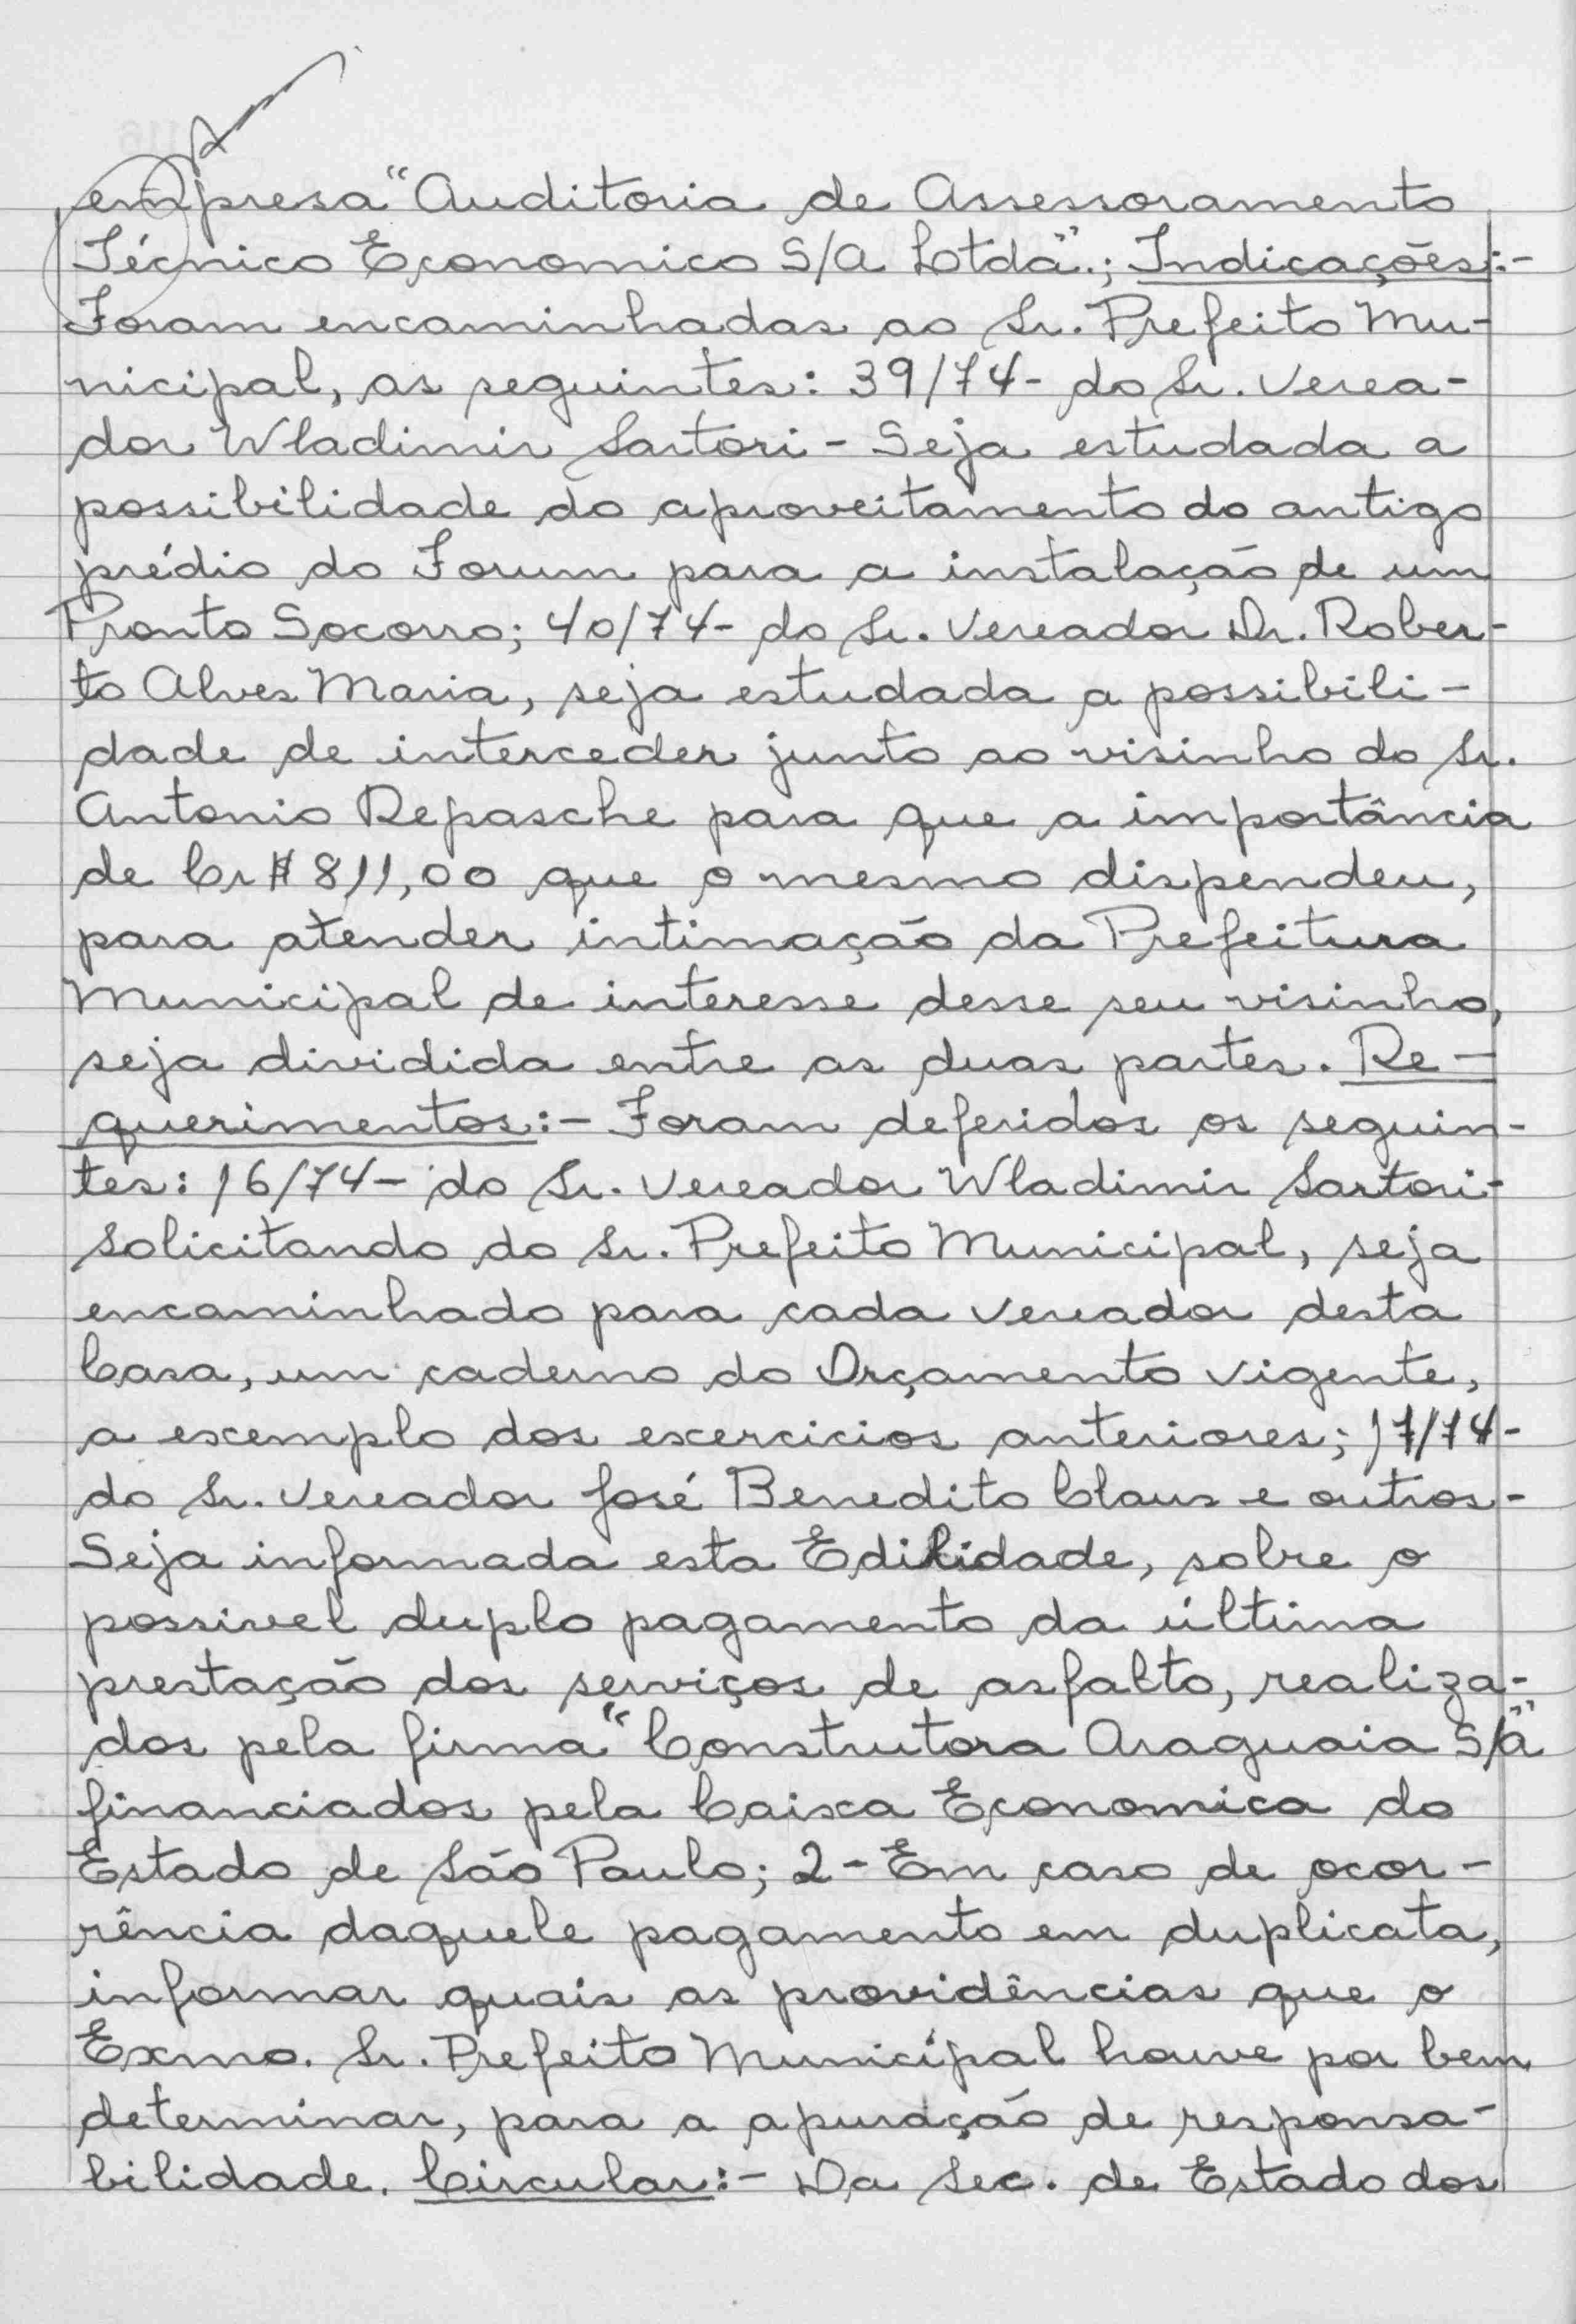 empresa "Auditoria de Assessoramento
Técnico Economico S/A Ltda".; Indicações:-
Foram encaminhadas ao Sr. Prefeito Mu-
nicipal, as seguintes: 39/74- do Sr. Verea-
dor Wladimir Sartori - Seja estudada a
possibilidade do aproveitamento do antigo
prédio do Forum para a instalação de um
Pronto Socorro; 40/74- do Sr. Vereador Dr. Rober-
to Alves Maria, seja estudada a possibili-
dade de interceder junto ao visinho do Sr.
Antonio Repasche para que a importância
de Cr$ 811,00 que o mesmo dispendeu,
para atender intimação da Prefeitura
Municipal de interesse desse seu visinho,
seja dividida entre as duas partes. Re-
querimentos:- Foram deferidos os seguin-
tes: 16/74- do Sr. Vereador Wladimir Sartori-
Solicitando do Sr. Prefeito Municipal, seja
encaminhado para cada vereador desta
Casa, um caderno do Orçamento vigente,
a exemplo dos exercicios anteriores; 17/74-
do Sr. Vereador José Benedito Claus e outros-
Seja informada esta Edilidade, sobre o
possivel duplo pagamento da última
prestação dos serviços de asfalto, realiza-
dos pela firma "Construtora Araguaia S/A"
financiados pela Caixa Economica do
Estado de São Paulo; 2- Em caso de ocor-
rência daquele pagamento em duplicata,
informar quais as providências que o
Exmo. Sr. Prefeito Municipal houve por bem
determinar, para a apuração de responsa-
bilidade. Circular:- Da Sec. de Estado dos